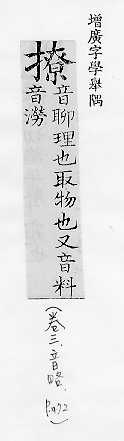 增廣字學舉隅
撩
音聊理也取物也又音料
音澇
(卷三、音略、P.272)